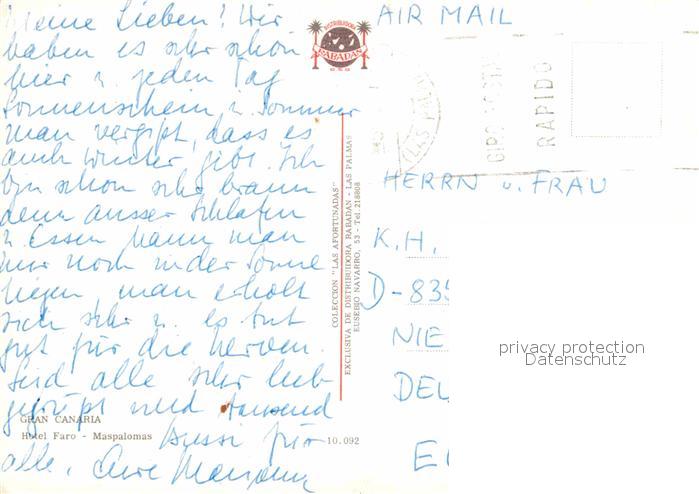 Meine Lieben! Wir
haben es sehr schön
hier u. jeden Tag
Sonnenschein u. Sommer
man vergißt, dass es
auch Winter gibt. Ich
bin schon sehr braun
denn ausser Schlafen
u. Essen kann man
nur noch in der Sonne
liegen, man erholt
sich sehr u. es tut
gut für die Nerven.
Seid alle sehr lieb
gegrüßt und tausend
Bussi für
alle, Eure
GRAN CANARIA
Hotel Faro - Maspalomas
10.092
DISTRIBUIDORA
RABADAN
COLECCION "LAS AFORTUNADAS"
EXCLUSIVA DE DISTRIBUIDORA RABADAN - LAS PALMAS
EUSEBIO NAVARRO, 53 - Tel. 218808
AIR MAIL
(LAS PALM
GIRO POSTA
RAPIDO
HERRN u. FRAU
K.H.
D-835
NIE
DEL
privacy protection
Datenschutz